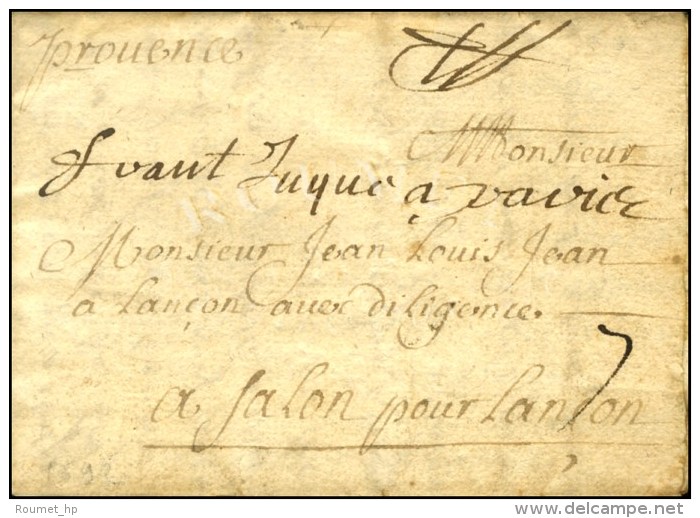 Prouence
Monsieur
franc Juque a paris
Monsieur Jean Louis Jean
a Lançon auec diligence
7
a Salon pour Lançon
Roumet_hp
delcampe.net